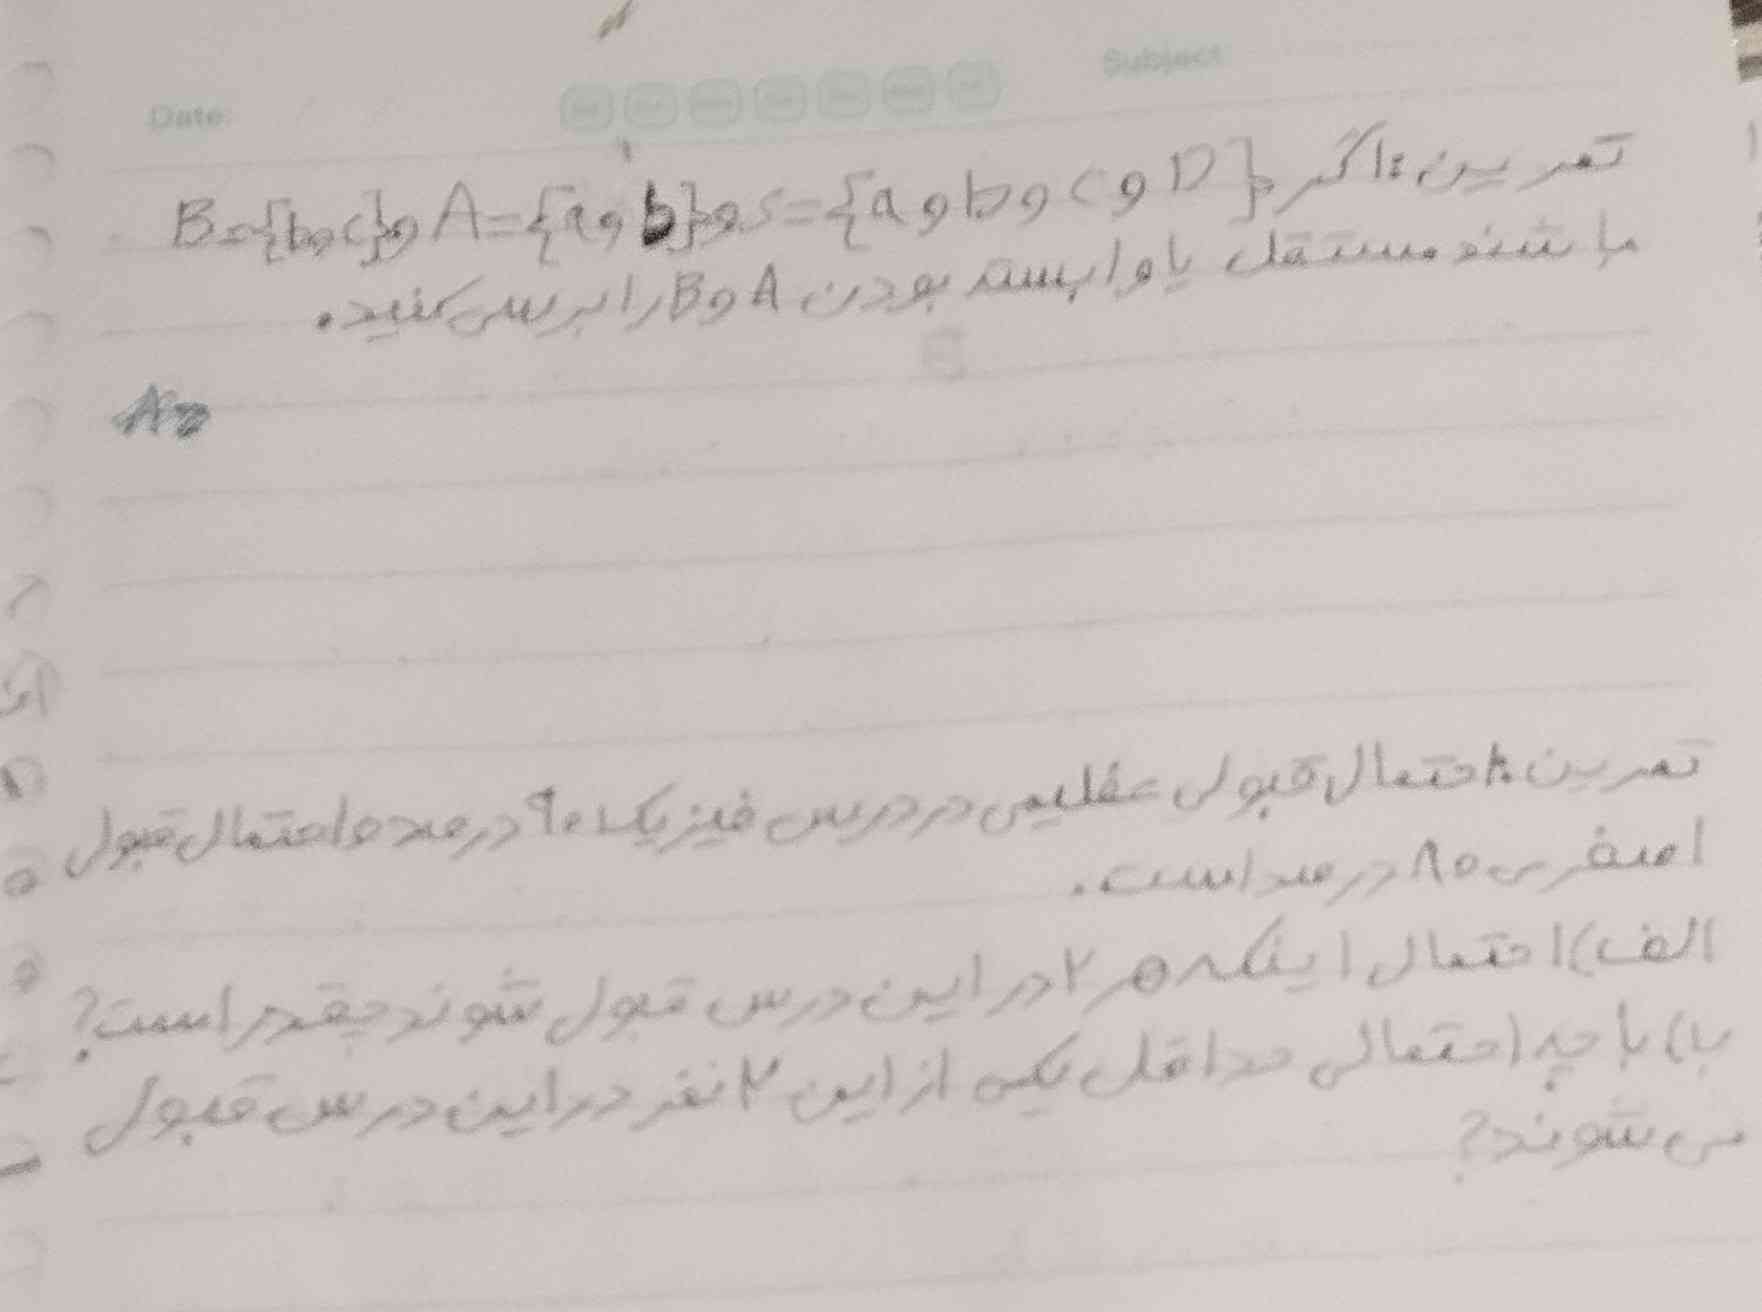 Date:
Subject
تمرین: اگر S={a و b و c و D} و A={a و b} و B={b و c}
باشند مستقل یا وابسته بودن A و B را بررسی کنید.
تمرین: احتمال قبولی عظیمی در درس فیزیک ۹۰ درصد و احتمال قبول
اصغری ۸۰ درصد است.
الف) احتمال اینکه هر ۲ در این درس قبول شوند چقدر است؟
ب) با چه احتمالی حداقل یکی از این ۲ نفر در این درس قبول
می شوند؟